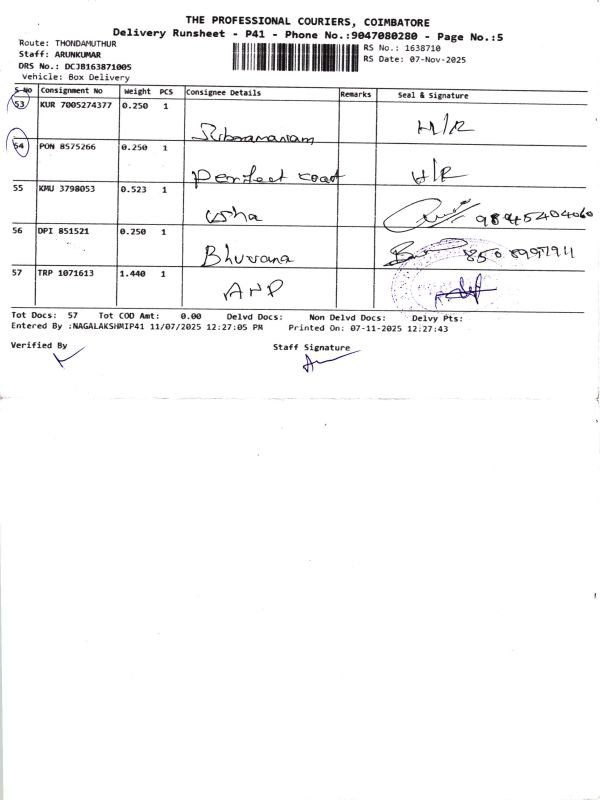 THE PROFESSIONAL COURIERS, COIMBATORE
Delivery Runsheet - P41 - Phone No.:9047080280 - Page No.:5
Route: THONDAMUTHUR
Staff: ARUNKUMAR
DRS No.: DCJB163871005
Vehicle: Box Delivery
RS No.: 1638710
RS Date: 07-Nov-2025
S No Consignment No Weight PCS Consignee Details Remarks Seal & Signature
53 KUR 7005274377 0.250 1 H/R
54 PON 8575266 0.250 1 Perfect coat H/R
55 KMU 3798053 0.523 1 Usha
56 DPI 851521 0.250 1 Bhuvana
57 TRP 1071613 1.440 1 ANP
Tot Docs: 57 Tot COD Amt: 0.00 Delvd Docs: Non Delvd Docs: Delvy Pts:
Entered By :NAGALAKSHMIP41 11/07/2025 12:27:05 PM Printed On: 07-11-2025 12:27:43
Verified By Staff Signature